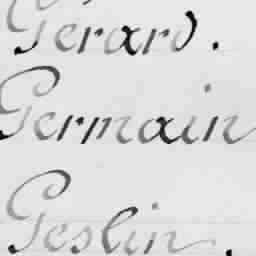 Gérard.
Germain
Geslin.